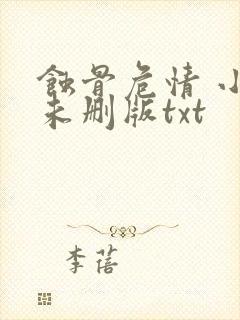 蚀骨危情 小
未删版txt
李蓓